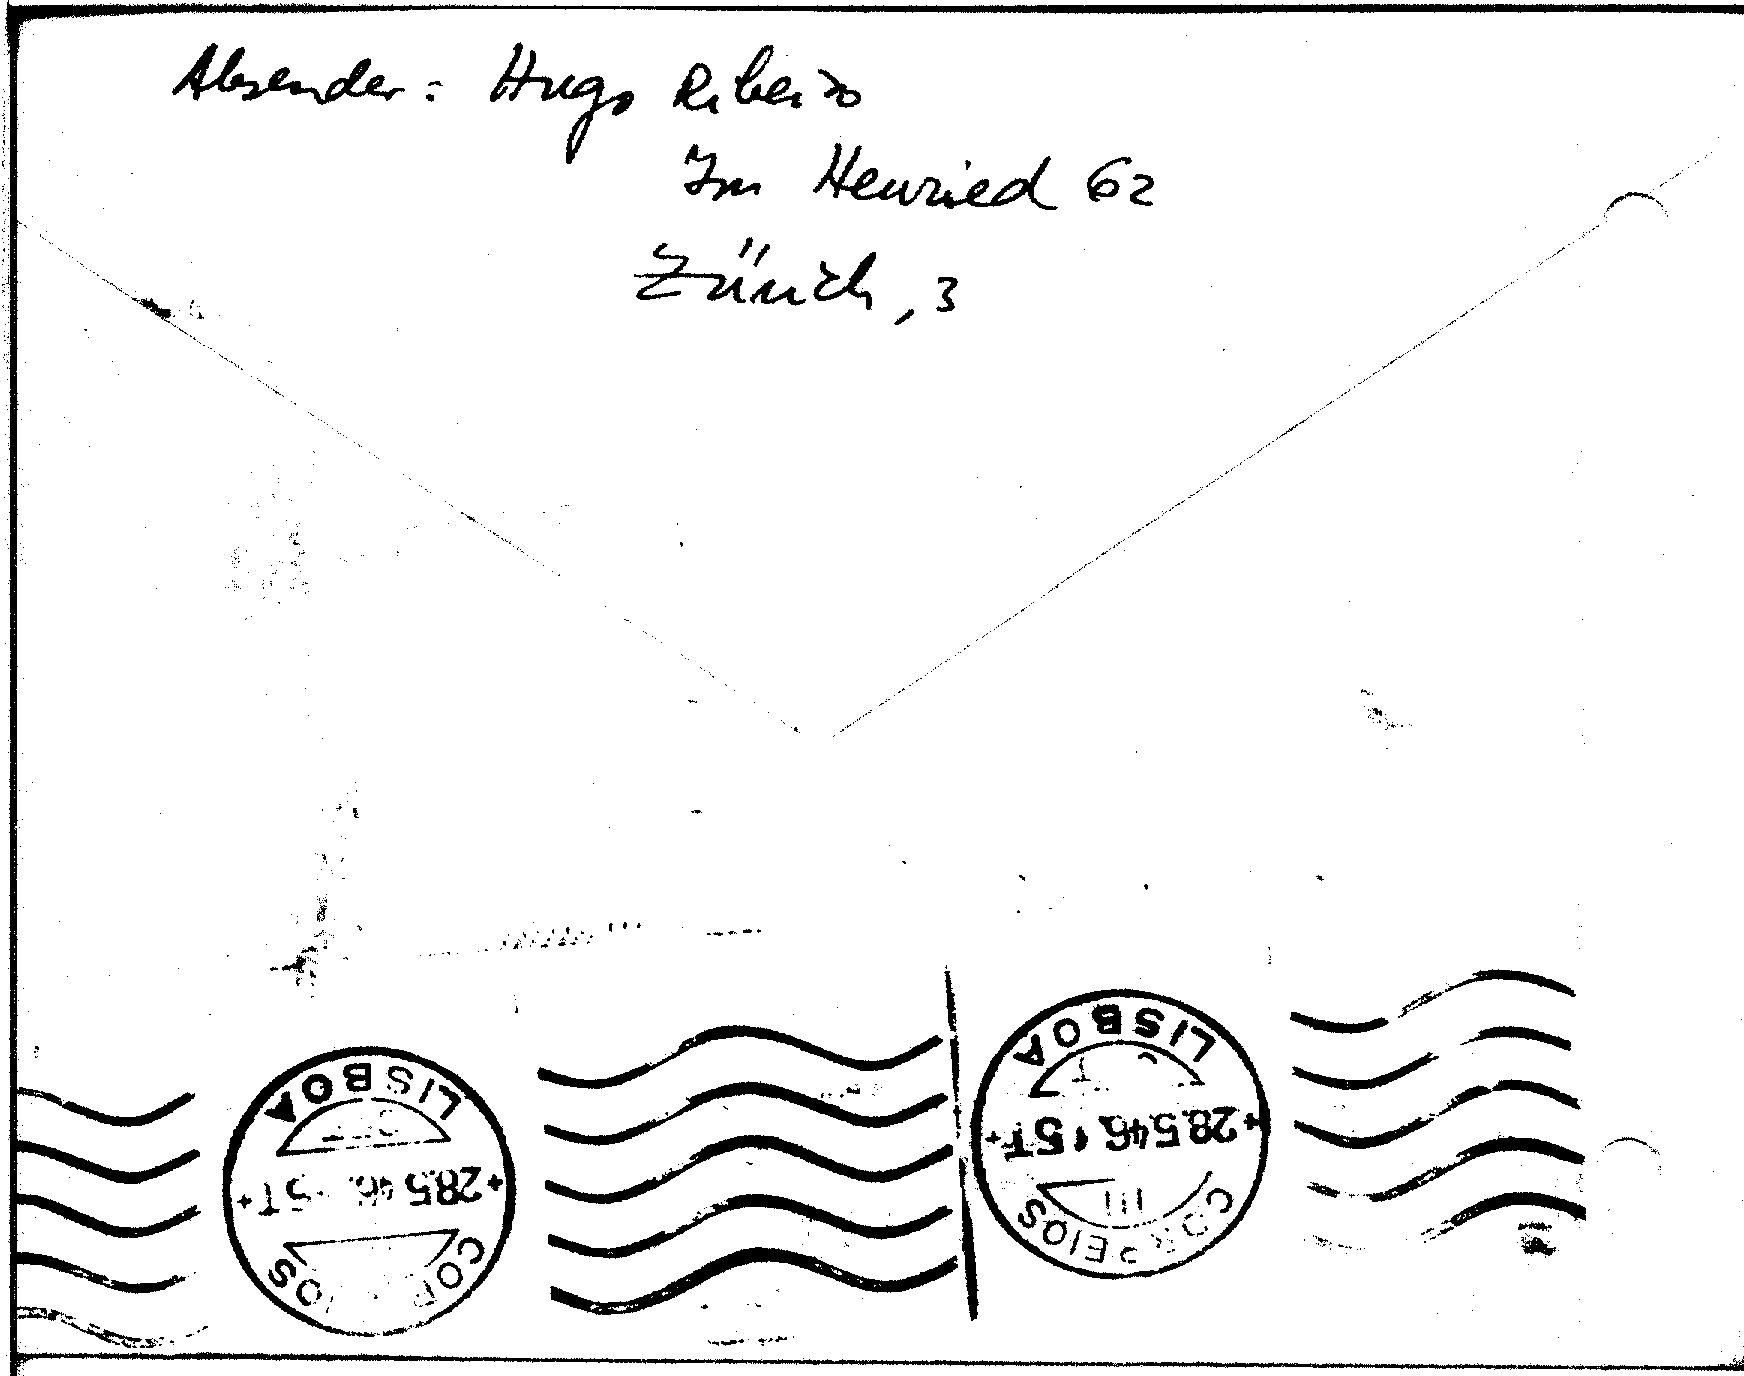 Absender: Hugo Ribeiro
Im Heuried 62
Zürich, 3
LISBOA
28.5.46. 5T
CORREIOS
LISBOA
28.5.46. 15T
CORREIOS